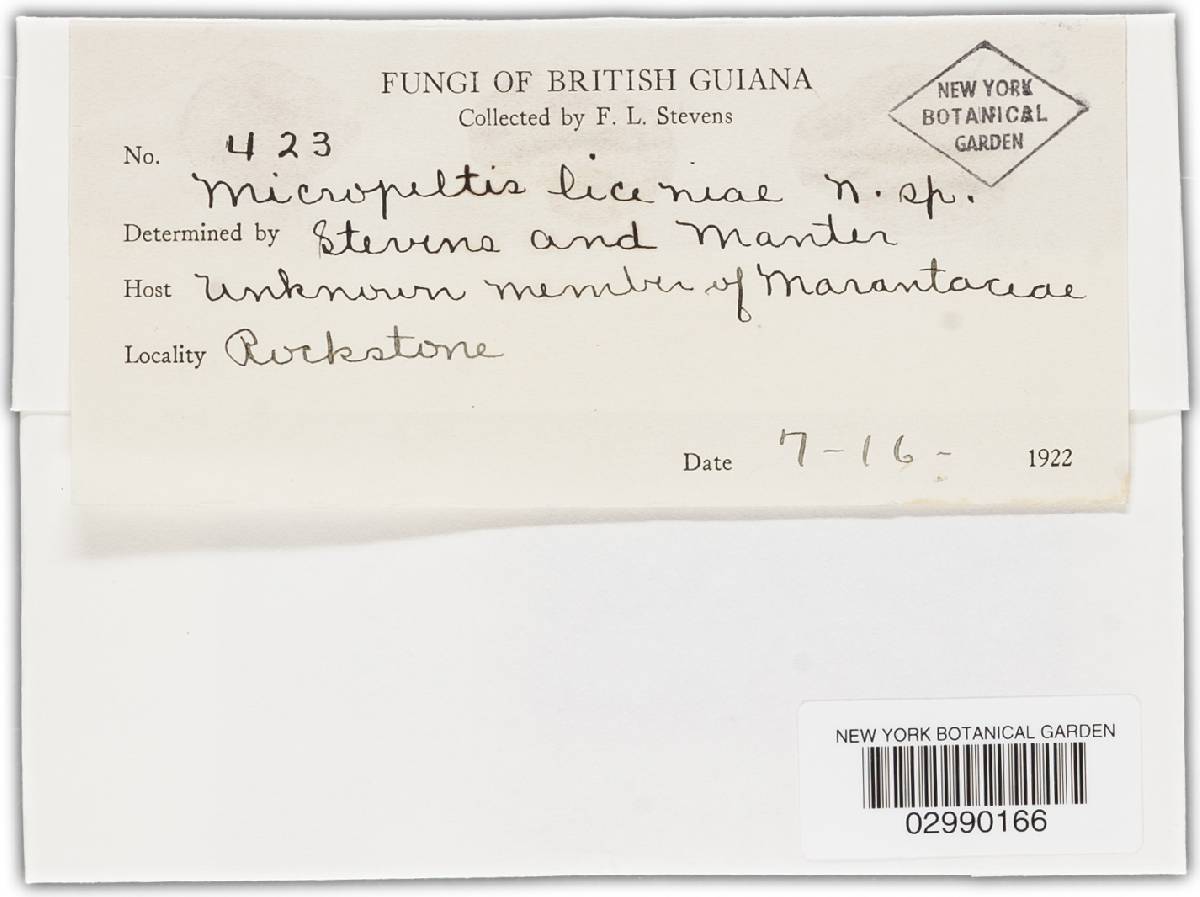 FUNGI OF BRITISH GUIANA
Collected by F. L. Stevens
NEW YORK
BOTANICAL
GARDEN
No. 423
Micropeltis liceniae n. sp.
Determined by Stevens and Manter
Host Unknown member of Marantaceae
Locality Rockstone
Date 7-16- 1922
NEW YORK BOTANICAL GARDEN
02990166